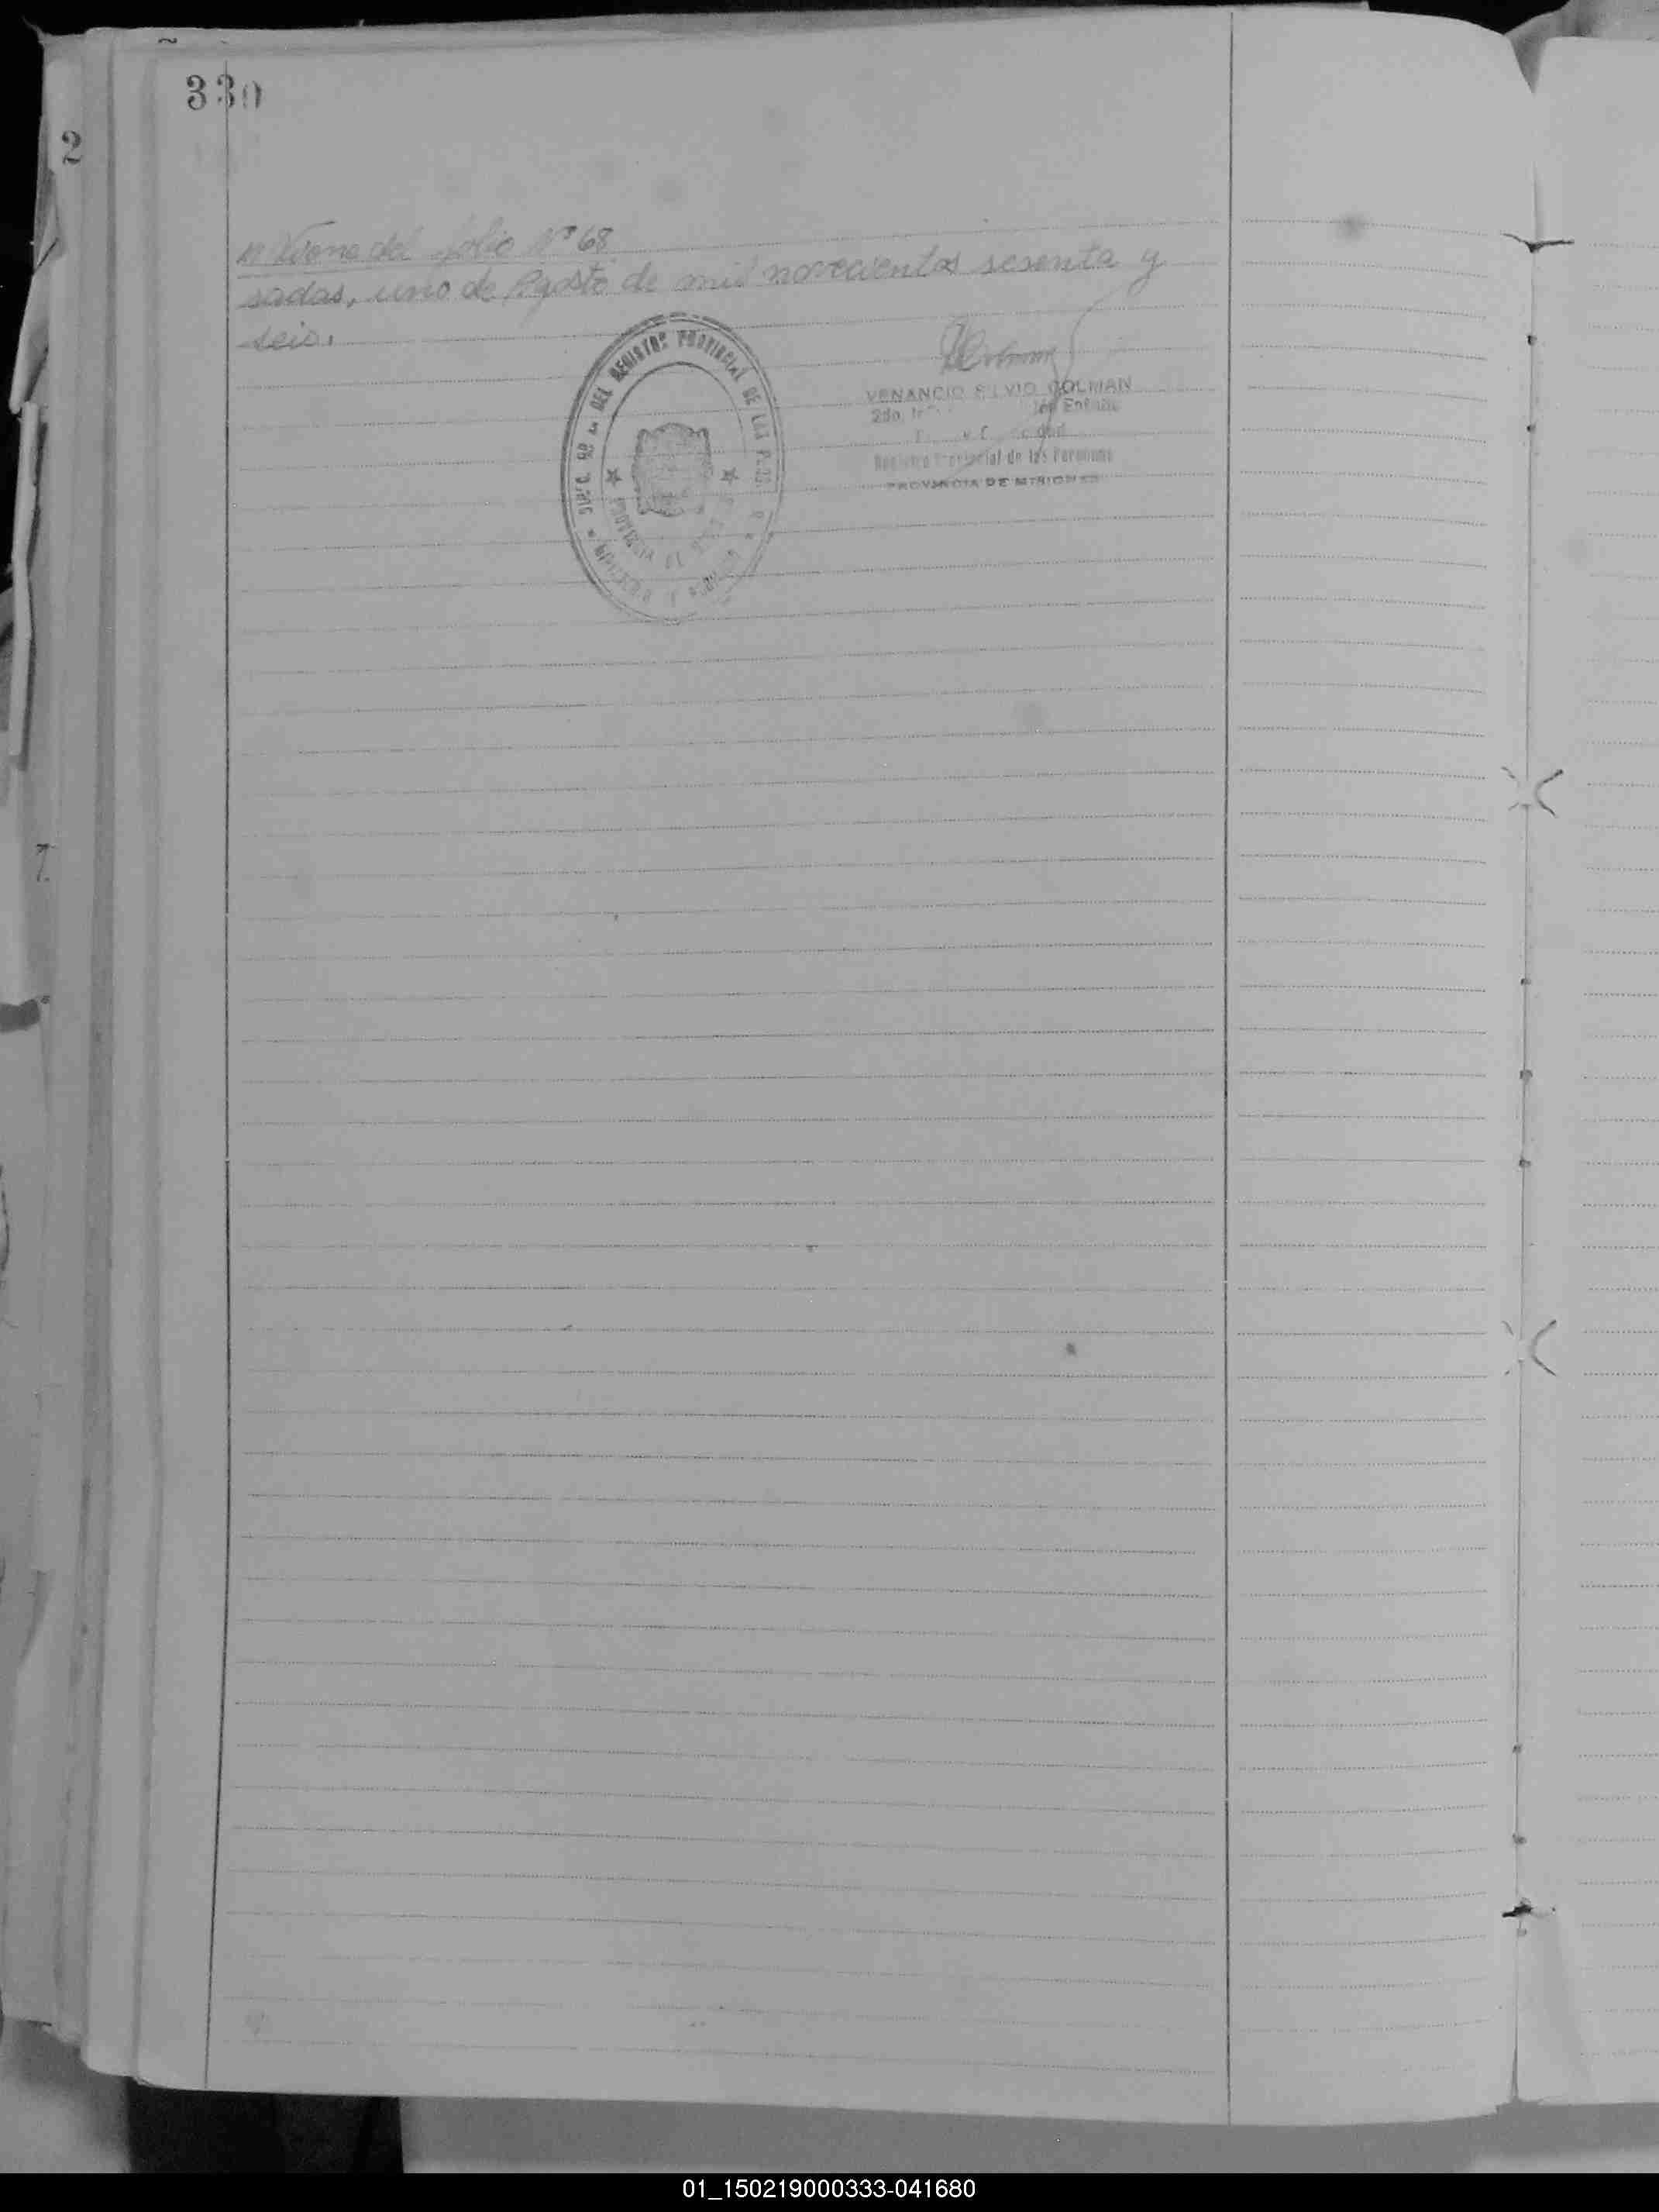 330
2
Viene del folio Nº 68
sadas, uno de Agosto de mil novecientos sesenta y
seis.
DEL REGISTRO PROVINCIAL DE LAS
PROVINCIA DE
VENANCIO SILVIO COLMAN
2do.
Registro Provincial de las Personas
PROVINCIA DE MISIONES
7
01_150219000333-041680